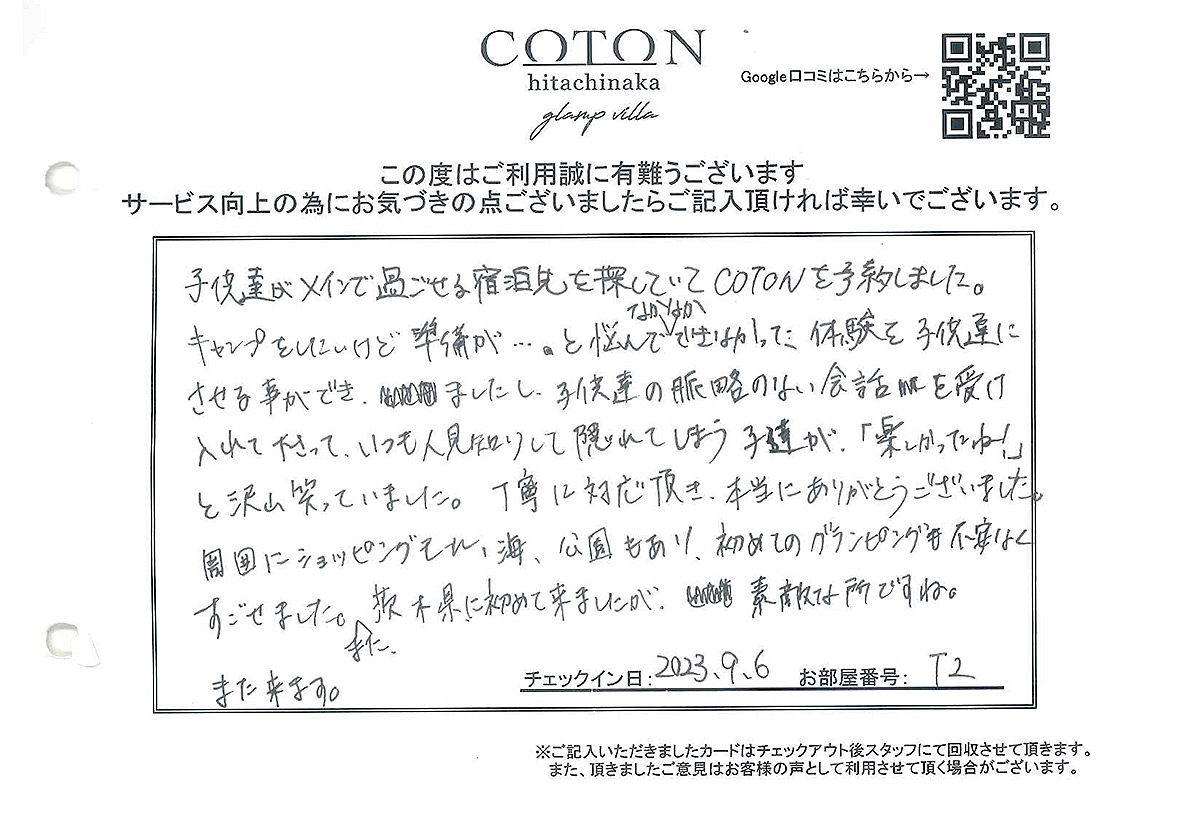 COTON
hitachinaka
glamp villa
Google口コミはこちらから→
この度はご利用誠に有難うございます
サービス向上の為にお気づきの点ございましたらご記入頂ければ幸いでございます。
子供達がメインで過ごせる宿泊先を探していてCOTONを予約しました。
なかなか
キャンプをしたいけど準備が…。と悩んでできなかった体験を子供達に
させる事ができ、ましたし、子供達の脈略のない会話を受け
入れて下さって、いつも人見知りして隠れてしまう子達が、「楽しかったね!」
と沢山笑っていました。丁寧に対応頂き、本当にありがとうございました。
周囲にショッピングモール、海、公園もあり、初めてのグランピングも不安なく
すごせました。茨木県に初めて来ましたが、素敵な所ですね。
また、
また来ます。
チェックイン日:2023.9.6 お部屋番号: T2
※ご記入いただきましたカードはチェックアウト後スタッフにて回収させて頂きます。
また、頂きましたご意見はお客様の声として利用させて頂く場合がございます。